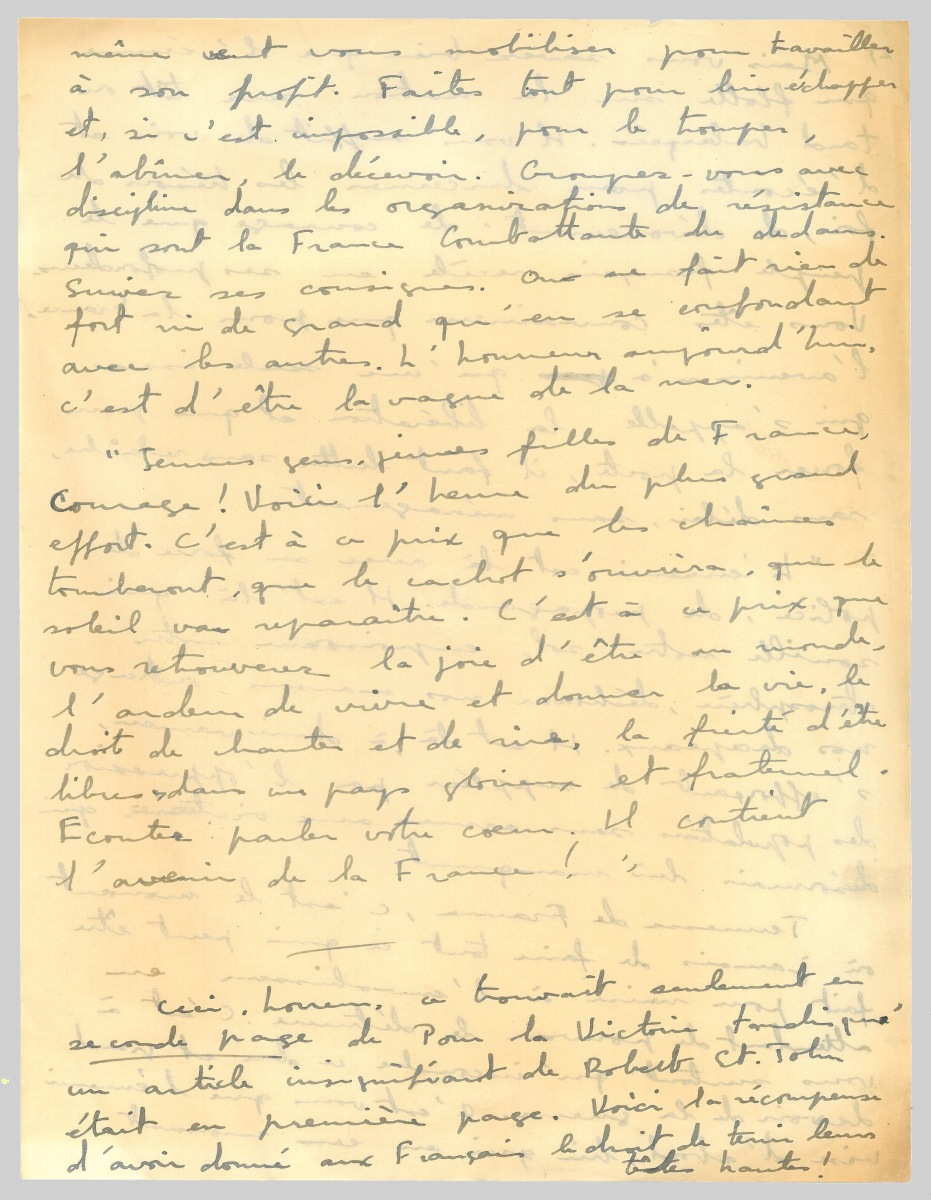 même veut vous mobiliser pour travailler
à son profit. Faites tout pour lui échapper
et, si c'est impossible, pour le tromper,
l'abîmer, le décevoir. Groupez-vous avec
discipline dans les organisations de résistance
qui sont la France Combattante du dedans.
Suivez ses consignes. On ne fait rien de
fort ni de grand qu'en se confondant
avec les autres. L'honneur aujourd'hui,
c'est d'être la vague de la mer.
"Jeunes gens, jeunes filles de France,
Courage! Voici l'heure du plus grand
effort. C'est à ce prix que les chaînes
tomberont, que le cachot s'ouvrira, que le
soleil va reparaître. C'est à ce prix que
vous retrouverez la joie d'être au monde,
l'ardeur de vivre et donner la vie, le
droit de chanter et de rire, la fierté d'être
libres, dans un pays glorieux et fraternel.
Ecoutez parler votre coeur. Il contient
l'avenir de la France!"
Ceci, horreur, se trouvait seulement en
seconde page de Pour la Victoire tandis que
un article insignifiant de Robert St. John
était en première page. Voici la récompense
d'avoir donné aux Français le droit de tenir leurs
têtes hautes!